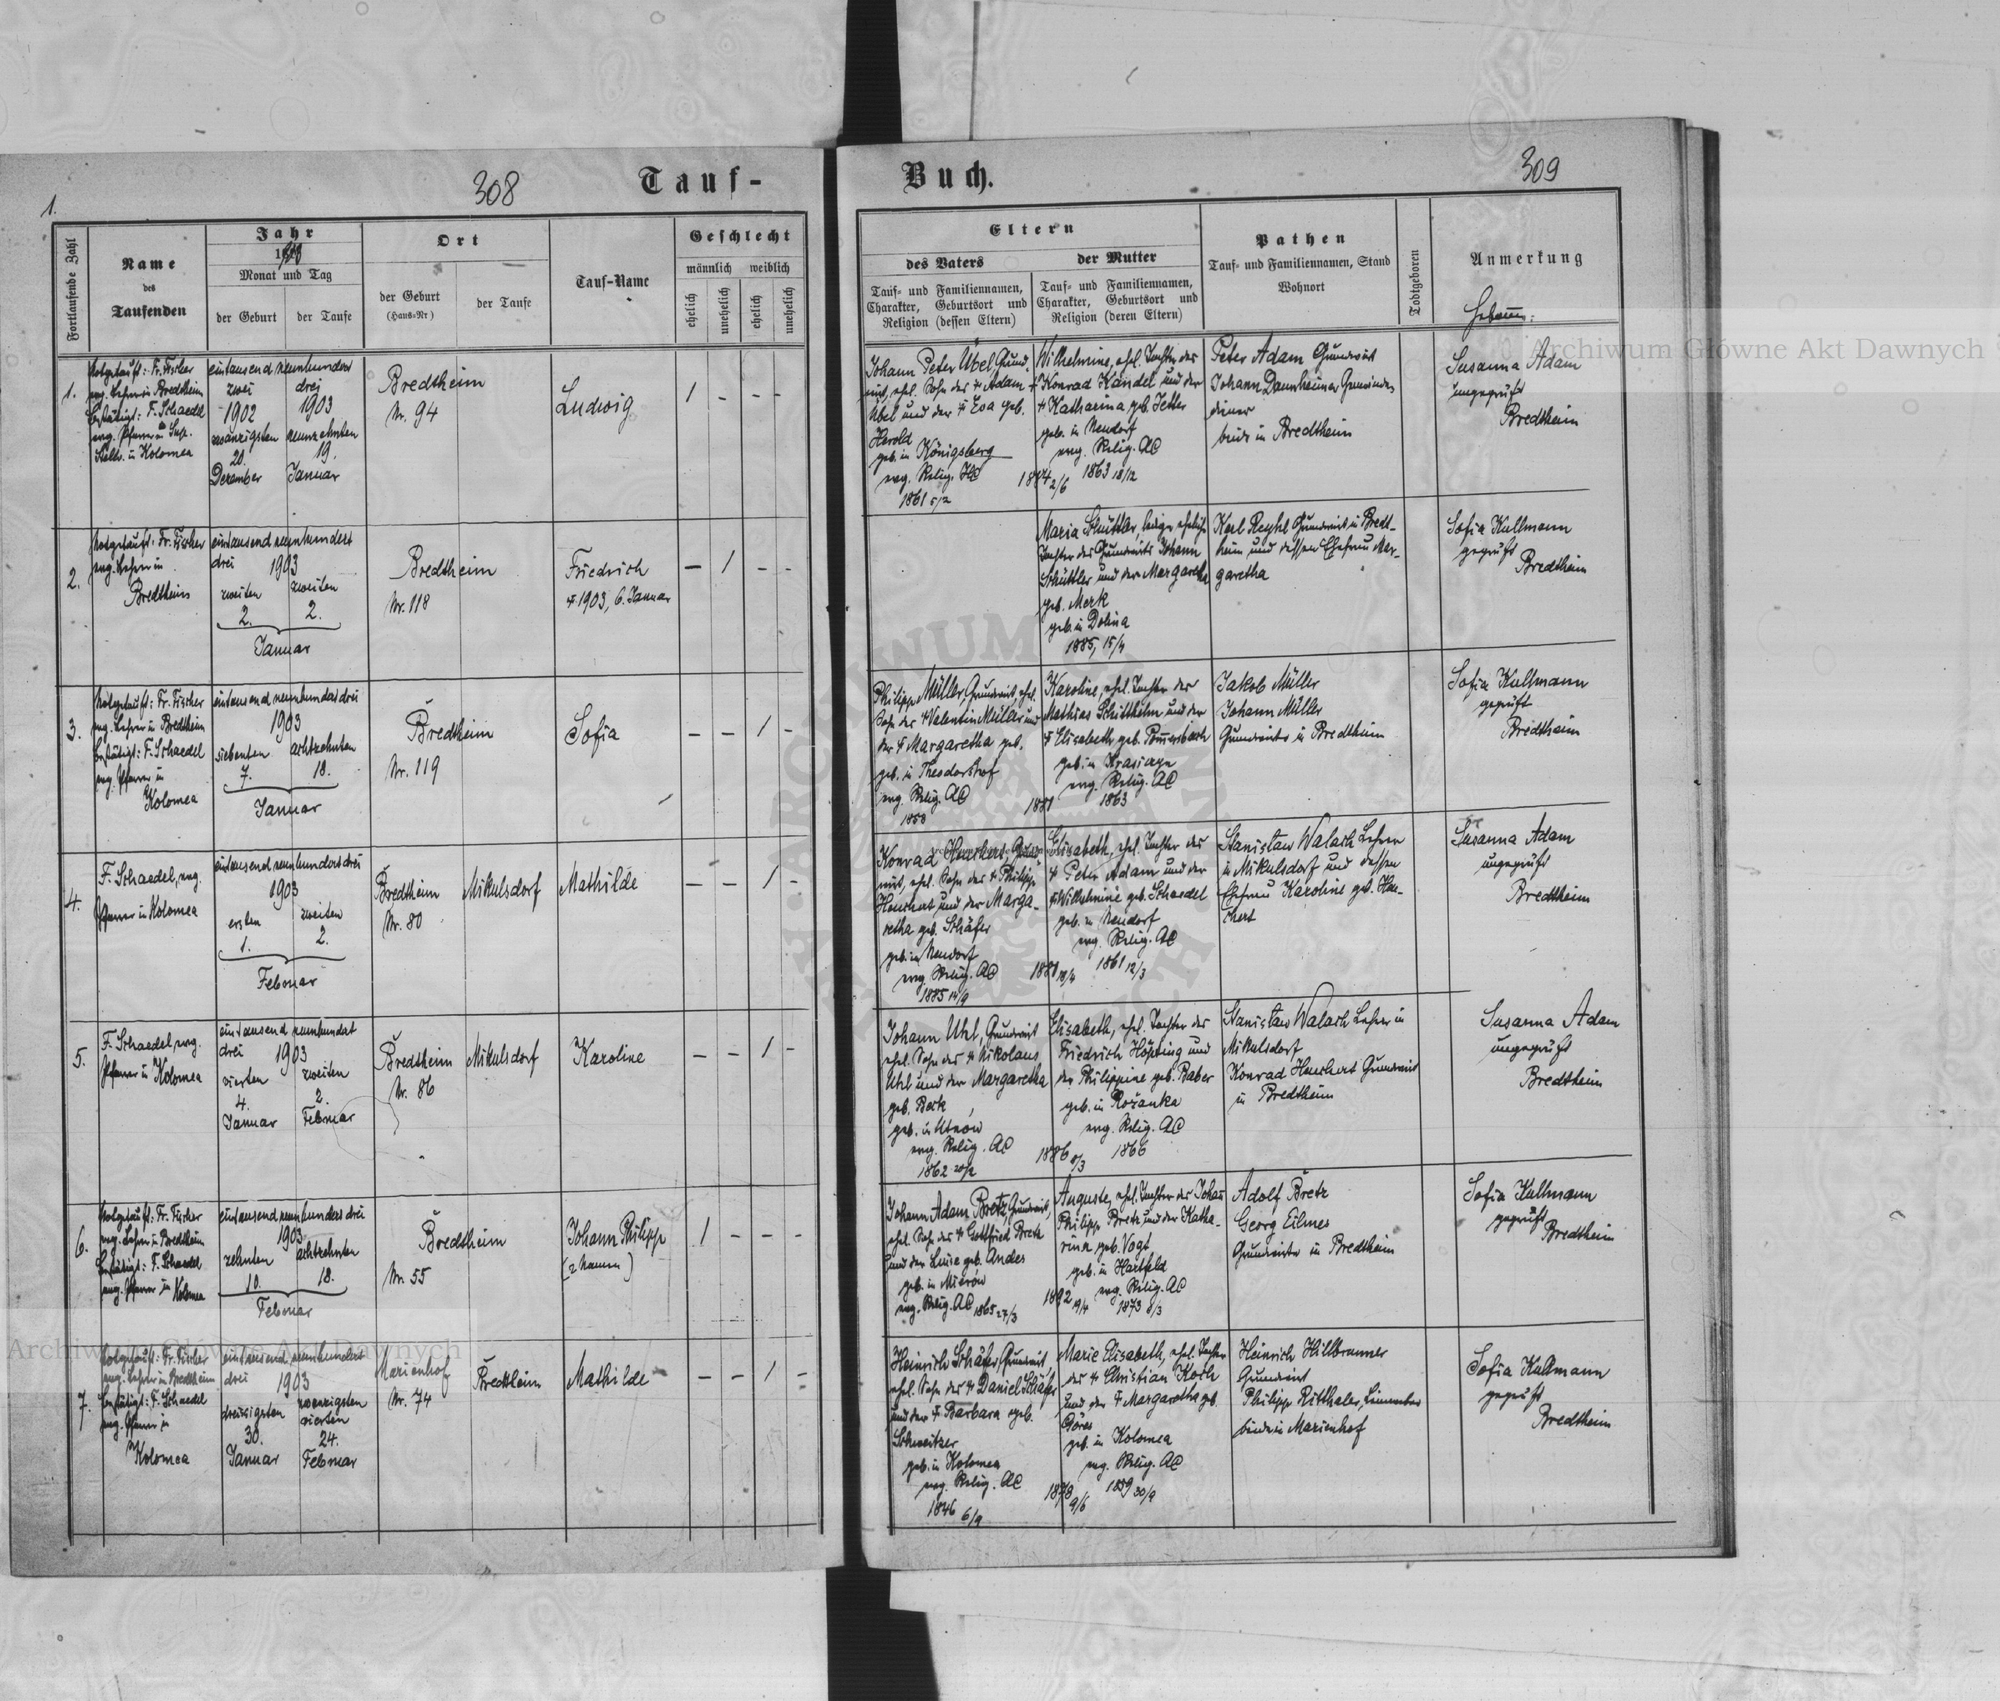 308
Tauf-
1.
Fortlaufende Zahl
Name
des
Taufenden
Jahr
Monat und Tag
der Geburt
der Taufe
Ort
der Geburt
(Haus-Nr)
der Taufe
Tauf-Name
Geschlecht
männlich
weiblich
ehelich
unehelich
ehelich
unehelich
1.
Notgetauft: Fr. Fischer
evg. Lehrer in Bredtheim
Bestätigt: F. Schaedel
evg. Pfarrer
in Kolomea
eintausend neunhundert
zwei
drei
1902
1903
zwanzigsten
neunzehnten
20.
19.
Dezember
Januar
Bredtheim
Nr. 94
Ludwig
1 - - -
2.
Notgetauft: Fr. Fischer
evg. Lehrer in
Bredtheim
eintausend neunhundert
drei 1903
zweiten
zweiten
2.
2.
Januar
Bredtheim
Nr. 118
Friedrich
† 1903, 6. Januar
- 1 - -
3.
Notgetauft: Fr. Fischer
evg. Lehrer in Bredtheim
Bestätigt: F. Schaedel
evg. Pfarrer in
Kolomea
eintausend neunhundert drei
1903
siebenten
achtzehnten
7.
18.
Januar
Bredtheim
Nr. 119
Sofia
- - 1 -
4.
F. Schaedel, evg.
Pfarrer in Kolomea
eintausend neunhundert drei
1903
ersten
zweiten
1.
2.
Februar
Bredtheim
Nr. 80
Mikulsdorf
Mathilde
- - 1 -
5.
F. Schaedel, evg.
Pfarrer in Kolomea
eintausend neunhundert
drei 1903
vierten
zweiten
4.
2.
Januar
Februar
Bredtheim
Nr. 86
Mikulsdorf
Karoline
- - 1 -
6.
Notgetauft: Fr. Fischer
evg. Lehrer in Bredtheim
Bestätigt: F. Schaedel
evg. Pfarrer in Kolomea
eintausend neunhundert drei
1903
zehnten
achtzehnten
10.
18.
Februar
Bredtheim
Nr. 55
Johann Philipp
(2 Namen)
1 - - -
7.
Notgetauft: Fr. Fischer
evg. Lehrer in Bredtheim
Bestätigt: F. Schaedel
evg. Pfarrer in
Kolomea
eintausend neunhundert
drei 1903
dreissigsten
zwanzigsten
vierten
30.
24.
Januar
Februar
Marienhof
Nr. 74
Bredtheim
Mathilde
- - 1 -
Buch.
309
Eltern
des Vaters
der Mutter
Tauf- und Familiennamen,
Charakter, Geburtsort und
Religion (dessen Eltern)
Tauf- und Familiennamen,
Charakter, Geburtsort und
Religion (deren Eltern)
Pathen
Tauf- und Familiennamen, Stand
Wohnort
Todtgeboren
Anmerkung
Johann Peter Übel, Grund-
wirt, ehel. Sohn des † Adam
Übel und der † Eva geb.
Herold
geb. in Königsberg
evg. Relig. HC
1861 5/2
Wilhelmine, ehel. Tochter des
† Konrad Kandel und der
† Katharina geb. Jetter
geb. in Neudorf
evg. Relig. AC
1863 18/12
Peter Adam Grundwirt
Johann Dannheimer Gemeinde-
diener
beide in Bredtheim
Susanna Adam
ungeprüft
Bredtheim
Maria Schüttler, ledige eheliche
Tochter des Grundwirts Johann
Schüttler und der Margaretha
geb. Merk
geb. in Dolina
1885, 15/4
Karl Reyhl Grundwirt in Bredt-
heim und dessen Ehefrau Mar-
garetha
Sofia Kullmann
geprüft
Bredtheim
Philipp Müller, Grundwirt, ehel.
Sohn des † Valentin Müller und
der † Margaretha geb.
geb. in Theodorshof
evg. Relig. AC
1858
Karoline, ehel. Tochter des
Mathias Schitthelm und der
† Elisabeth geb. Pommersbach
geb. in Krasiczyn
evg. Relig. AC
1881
1863
Jakob Müller
Johann Müller
Grundwirte in Bredtheim
Sofia Kullmann
geprüft
Bredtheim
Konrad Heuchert, Grund-
wirt, ehel. Sohn des † Philipp
Heuchert und der Marga-
retha geb. Schäfer
geb. in Neudorf
evg. Relig. AC
Elisabeth, ehel. Tochter des
† Peter Adam und der
† Wilhelmine geb. Schaedel
geb. in Neudorf
evg. Relig. AC
1861 12/3
Stanislaw Walach Lehrer
in Mikulsdorf und dessen
Ehefrau Karoline geb. Heu-
chert
Susanna Adam
ungeprüft
Bredtheim
Johann Uhl, Grundwirt
ehel. Sohn des † Nikolaus
Uhl und der Margaretha
geb. Beck
geb. in Utnów
evg. Relig. AC
1862 20/2
Elisabeth, ehel. Tochter des
Friedrich Höpting und
der Philippine geb. Baber
geb. in Rożanka
evg. Relig. AC
1886 8/3
1866
Stanislaw Walach Lehrer in
Mikulsdorf
Konrad Heuchert Grundwirt
in Bredtheim
Susanna Adam
ungeprüft
Bredtheim
Johann Adam Bretz, Grundwirt,
ehel. Sohn des † Gottfried Bretz
und der Luise geb. Andes
geb. in Mierów
evg. Relig. AC 1865 27/3
Auguste, ehel. Tochter des Johann
Philipp Bretz und der Katha-
rina geb. Vogt
geb. in Hartfeld
evg. Relig. AC
1892 19/4
1873 8/3
Adolf Bretz
Georg Eilmes
Grundwirte in Bredtheim
Sofia Kullmann
geprüft
Bredtheim
Heinrich Schäfer, Grundwirt,
ehel. Sohn des † Daniel Schäfer
und der † Barbara geb.
Schweitzer
geb. in Kolomea
evg. Relig. AC
1846 6/9
Marie Elisabeth, ehel. Tochter
des † Christian Koch
und der † Margaretha geb.
geb. in Kolomea
evg. Relig. AC
1878 9/6
1859 30/9
Heinrich Hillbrunner
Grundwirt
Philipp Ritthaler, Leinweber
beide in Marienhof
Sofia Kullmann
geprüft
Bredtheim
Archiwum Główne Akt Dawnych
Archiwum Główne Akt Dawnych